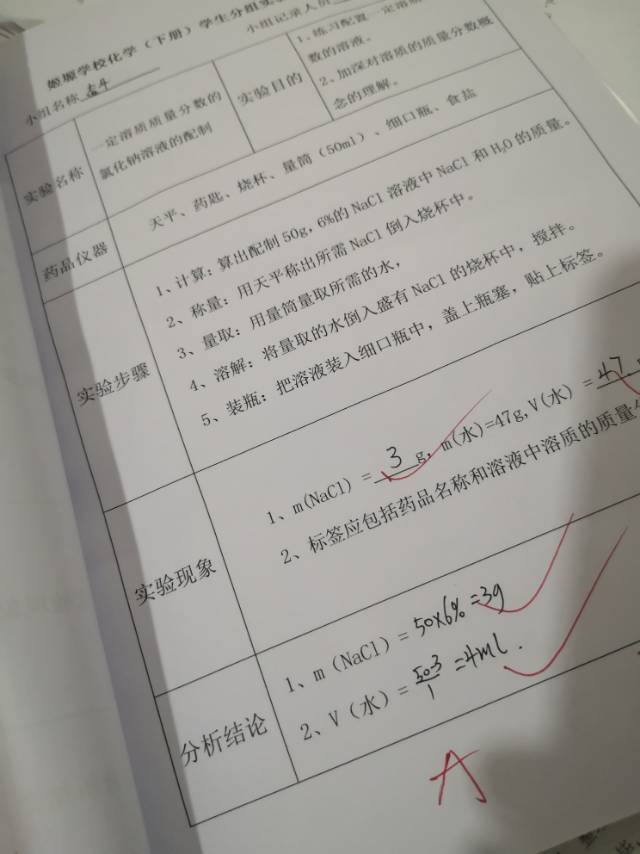 姬塬学校化学（下册）学生分组实
小组记录人员
小组名称
实验名称
一定溶质质量分数的
氯化钠溶液的配制
实验目的
1、练习配置一定溶质
数的溶液。
2、加深对溶质的质量分数概
念的理解。
药品仪器
天平、药匙、烧杯、量筒（50ml）、细口瓶、食盐
实验步骤
1、计算：算出配制50g，6%的 NaCl 溶液中 NaCl 和 H₂O 的质量。
2、称量：用天平称出所需 NaCl 倒入烧杯中。
3、量取：用量筒量取所需的水，
4、溶解：将量取的水倒入盛有 NaCl 的烧杯中，搅拌。
5、装瓶：把溶液装入细口瓶中，盖上瓶塞，贴上标签。
实验现象
1、m(NaCl) = 3 g, m(水)=47g,V(水) = 47
2、标签应包括药品名称和溶液中溶质的质量
分析结论
1、m（NaCl）= 50×6%=3g
2、V（水）= 50-3/1 =4ml.
A